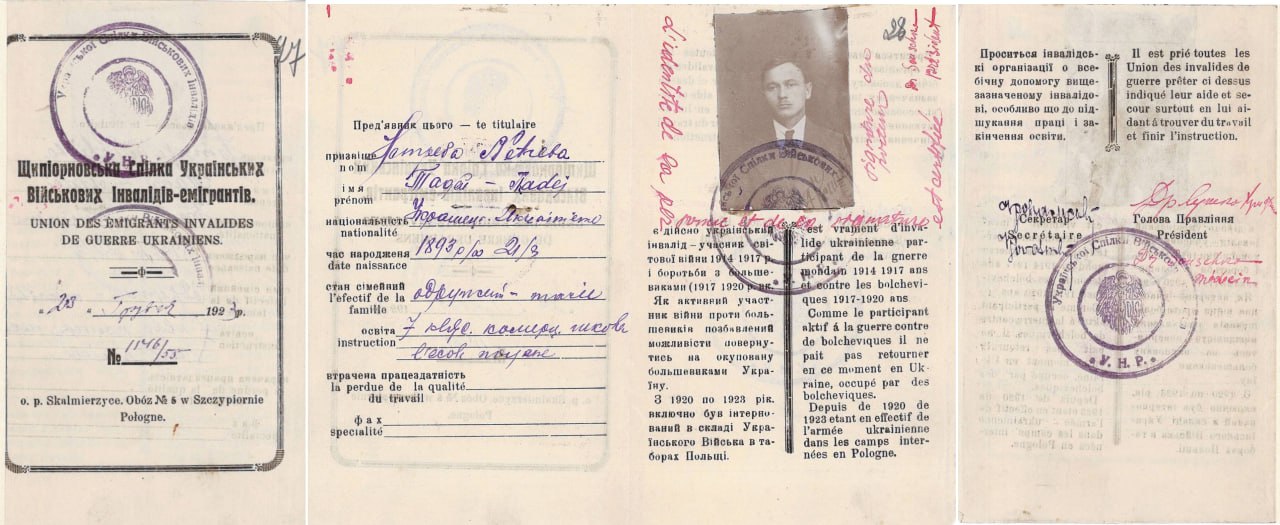 47
Української Спілки Військових Інвалідів
У.Н.Р.
Щипіорновська Спілка Українських
Військових Інвалідів-емігрантів.
UNION DES ÉMIGRANTS INVALIDES
DE GUERRE UKRAINIENS.
"23" Грудня 1923р.
№ 1146/55
o. p. Skalmierzyce. Obóz № 6 w Szczypiornie
Pologne.
Пред'явник цього — te titulaire
призвіще
nom
ім'я Тадей Tadei
prénom
національність
nationalité
час народження 1893 р/о 21/3
date naissance
стан сімейний
l'efectif de la одружений - marié
famille
освіта 7 кляс. комерц. школа
instruction
l'école moyene
втрачена працездатність
la perdue de la qualité
du travail
фах
specialité
28
d'identité de la per
sonne et de sa signature
est certifiée
Président
Української Спілки Військових
У.Н.Р.
є дійсно український
інвалід - учасник сві-
тової війни 1914 1917 р.
і боротьби з больше-
виками (1917 1920 р.
Як активний участ-
ник війни проти боль-
шевиків позбавлений
можливости повернутись
тись на окуповану
большевиками Украї-
ну.
З 1920 по 1923 рік.
включно був інтерно-
ваний в складі Укра-
їнського Війська в та-
борах Польщі.
est vraiment d'inva-
lide ukrainienne par-
ticipant de la gnerre
mondain 1914 1917 ans
et contre les bolchevi-
ques 1917-1920 ans
Comme le participant
aktif á la guerre contre
de bolcheviques il ne
pait pas retourner
en ce moment en Uk-
raine, occupé par des
bolcheviques.
Depuis de 1920 de
1923 etant en effectif de
l'armée ukrainienne
dans les camps inter-
nées en Pologne.
Проситься інвалідсь-
кі організації о все-
бічну допомогу вище-
зазначеному інвалідо-
ві, особливо що до від-
шукання праці і за-
кінчення освіти.
Il est prié toutes les
Union des invalides de
guerre prêter ci dessus
indiqué leur aide et se-
cour surtout en lui ai-
dant á trouver du travail
et finir l'instruction.
Секретар
Secrétaire
Голова Правління
Président
Української Спілки Військов
У.Н.Р.